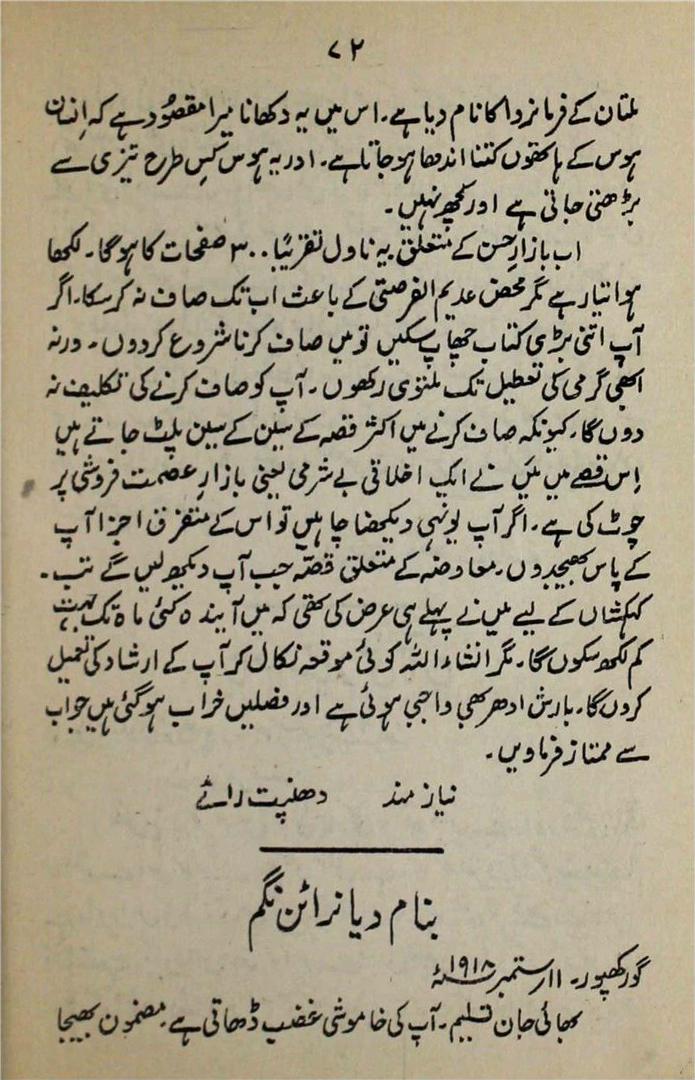 ۷۲
ملتان کے فرمانروا کا نام دیا ہے۔ اس میں یہ دکھانا میرا مقصُود ہے کہ اِنسان
ہوس کے ہاتھوں کتنا اندھا ہو جاتا ہے۔ اور یہ ہوس کِس طرح تیزی سے
بڑھتی جاتی ہے اور کچھ نہیں۔
اب بازارِ حسن کے متعلق یہ ناول تقریبًا ۳۰۰ صفحات کا ہوگا۔ لکھا
ہوا تیار ہے مگر محض عدیم الفرصتی کے باعث اب تک صاف نہ کر سکا۔ اگر
آپ اتنی بڑی کتاب چھاپ سکیں تو میں صاف کرنا شروع کر دوں۔ ورنہ
ابھی گرمی کی تعطیل تک ملتوی رکھوں۔ آپ کو صاف کرنے کی تکلیف نہ
دوں گا۔ کیونکہ صاف کرنے میں اکثر قصہ کے سین کے سین پلٹ جاتے ہیں
اِس قصے میں میَں نے ایک اخلاقی بے شرمی یعنی بازارِ عصمت فروشی پر
چوٹ کی ہے۔ اگر آپ یونہی دیکھنا چاہیں تو اس کے متفرق اجزا آپ
کے پاس بھیجدوں۔ معاوضہ کے متعلق قصّہ جب آپ دیکھ لیں گے تب۔
کہکشاں کے لیے میں نے پہلے ہی عرض کی تھی کہ میں آیندہ کئی ماہ تک بہت
کم لکھ سکوں گا۔ مگر انشاء اللہ کوئی موقعہ نکال کر آپ کے ارشاد کی تعمیل
کروں گا۔ بارش ادھر بھی واجبی ہوئی ہے اور فصلیں خراب ہو گئی ہیں جواب
سے ممتاز فرماویں۔
نیاز مند دھنپت رائے
بنام دیا نرائن نگم
گورکھپور۔ ۱۱ ستمبر ۱۹۱۸ء
بھائی جان تسلیم۔ آپ کی خاموشی غضب ڈھاتی ہے۔ مضمون بھیجا